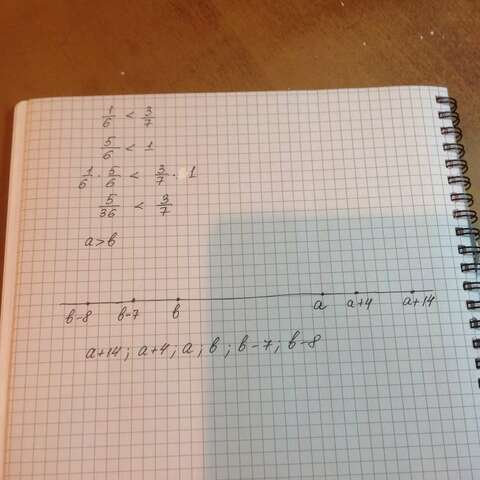 1/6 < 3/7
5/6 < 1
1/6 · 5/6 < 3/7 · 1
5/36 < 3/7
a>b
b-8 b-7 b a a+4 a+14
a+14; a+4; a; b; b-7; b-8